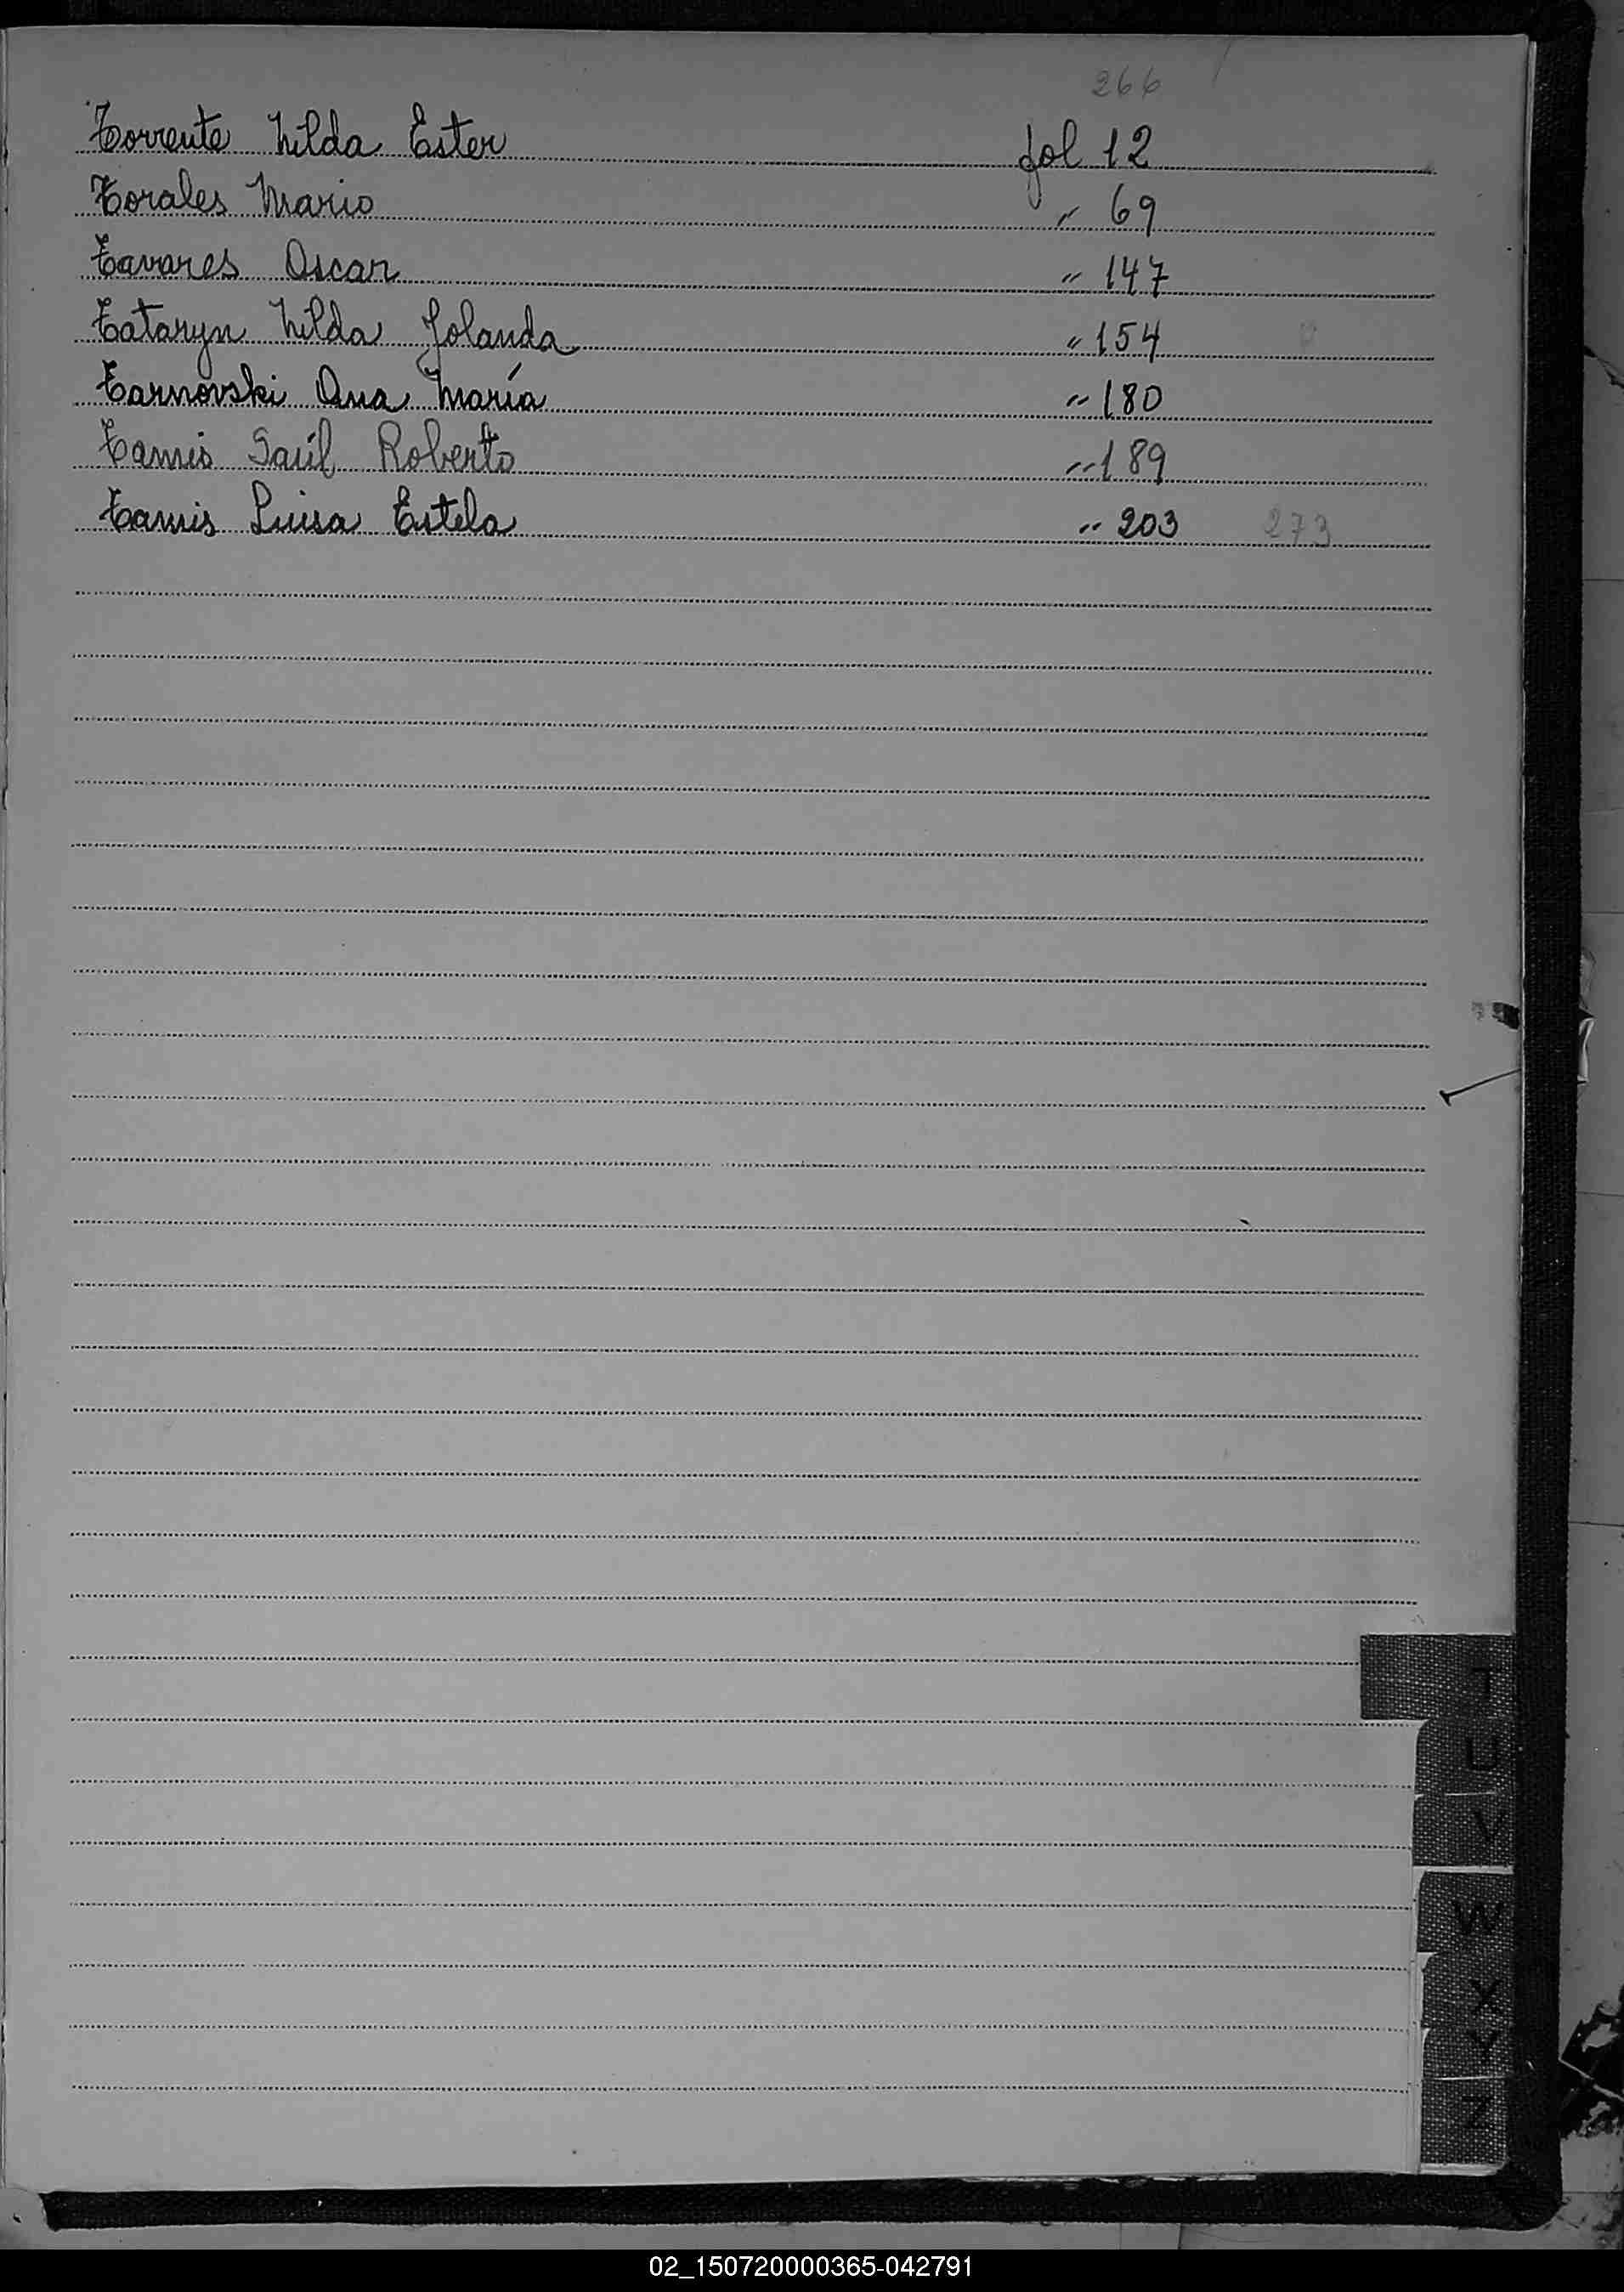 266
Torrente Nilda Ester fol 12
Torales Mario " 69
Tavares Oscar " 147
Tataryn Nilda Yolanda " 154
Tarnovski Ana María " 180
Tamis Saúl Roberto " 189
Tamis Luisa Estela " 203 273
T
U
V
W
X
Y
Z
02_150720000365-042791